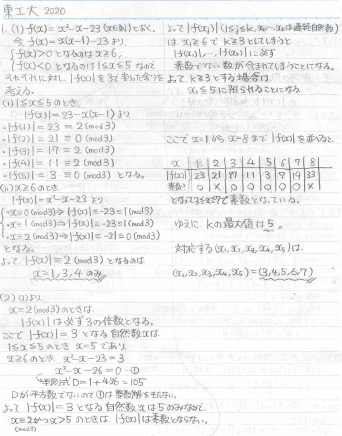 東工大 2020
1. (1) f(x) = x²-x-23 (x∈N) とおく。
今、f(x) = x(x-1)-23 より
f(x)>0となるのはx≧6,
f(x)<0となるのは1≦x≦5なので
それぞれに対し、|f(x)|を3で割った余りを
考える。
(i) 1≦x≦5のとき、
|f(x)| = 23-x(x-1) より
・|f(1)| = 23 ≡ 2 (mod3)
・|f(2)| = 21 ≡ 0 (mod3)
・|f(3)| = 17 ≡ 2 (mod3)
・|f(4)| = 11 ≡ 2 (mod3)
・|f(5)| = 3 ≡ 0 (mod3) となる。
(ii) x≧6のとき
|f(x)| = x²-x-23 より
・x≡0 (mod3) ⇒ |f(x)| ≡ -23 ≡ 1 (mod3)
・x≡1 (mod3) ⇒ |f(x)| ≡ -23 ≡ 1 (mod3)
・x≡2 (mod3) ⇒ |f(x)| ≡ -21 ≡ 0 (mod3)
となる。
よって |f(x)| ≡ 2 (mod3) となるのは
x=1,3,4 のみ
(2) (1)より
x≡2 (mod3) のときは
|f(x)| は必ず3の倍数となる。
ここで |f(x)| = 3 となる自然数xは
1≦x≦5 のとき x=5 であり
x≧6のとき x²-x-23=3
x²-x-26=0 -①
判別式 D=1+4・26=105
Dが平方数でないので①は整数解をもたない。
よって |f(x)| = 3 となる自然数xは5のみなので、
x≡2かつx>5 のときは |f(x)| は素数とならない。
(mod3)
よって |f(xj)| (1≦j≦k, x1,…,xkは連続自然数)
は、x≧6で k≧3としてしまうと
|f(x1)|,…,|f(xk)| に必ず
素数でない数が含まれてしまうことになる。
よって、k≧3とする場合は
x1≦5に限られることになる
ここで x=1から x=8まで |f(x)| を並べると
x 1 2 3 4 5 6 7 8
|f(x)| 23 21 17 11 3 7 19 33
素数? ○ × ○ ○ ○ ○ ○ ×
となって3≦x≦7で素数となっている。
ゆえに kの最大値は5。
対応する(x1,x2,x3,x4,x5)は
(x1,x2,x3,x4,x5)=(3,4,5,6,7)